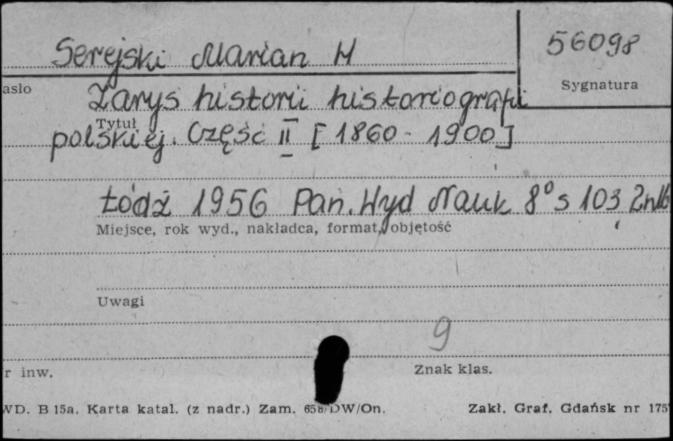 Serejski Marian H
56098
asło
Sygnatura
Zarys historii historiografii
Tytuł
polskiej. Część II [1860 - 1900]
Łódź 1956 Pań. Wyd Nauk 8° s 103 2nlb
Miejsce, rok wyd., nakładca, format, objętość
Uwagi
9
r inw.
Znak klas.
WD. B 15a. Karta katal. (z nadr.) Zam. 658/DW/On.
Zakł. Graf. Gdańsk nr 175